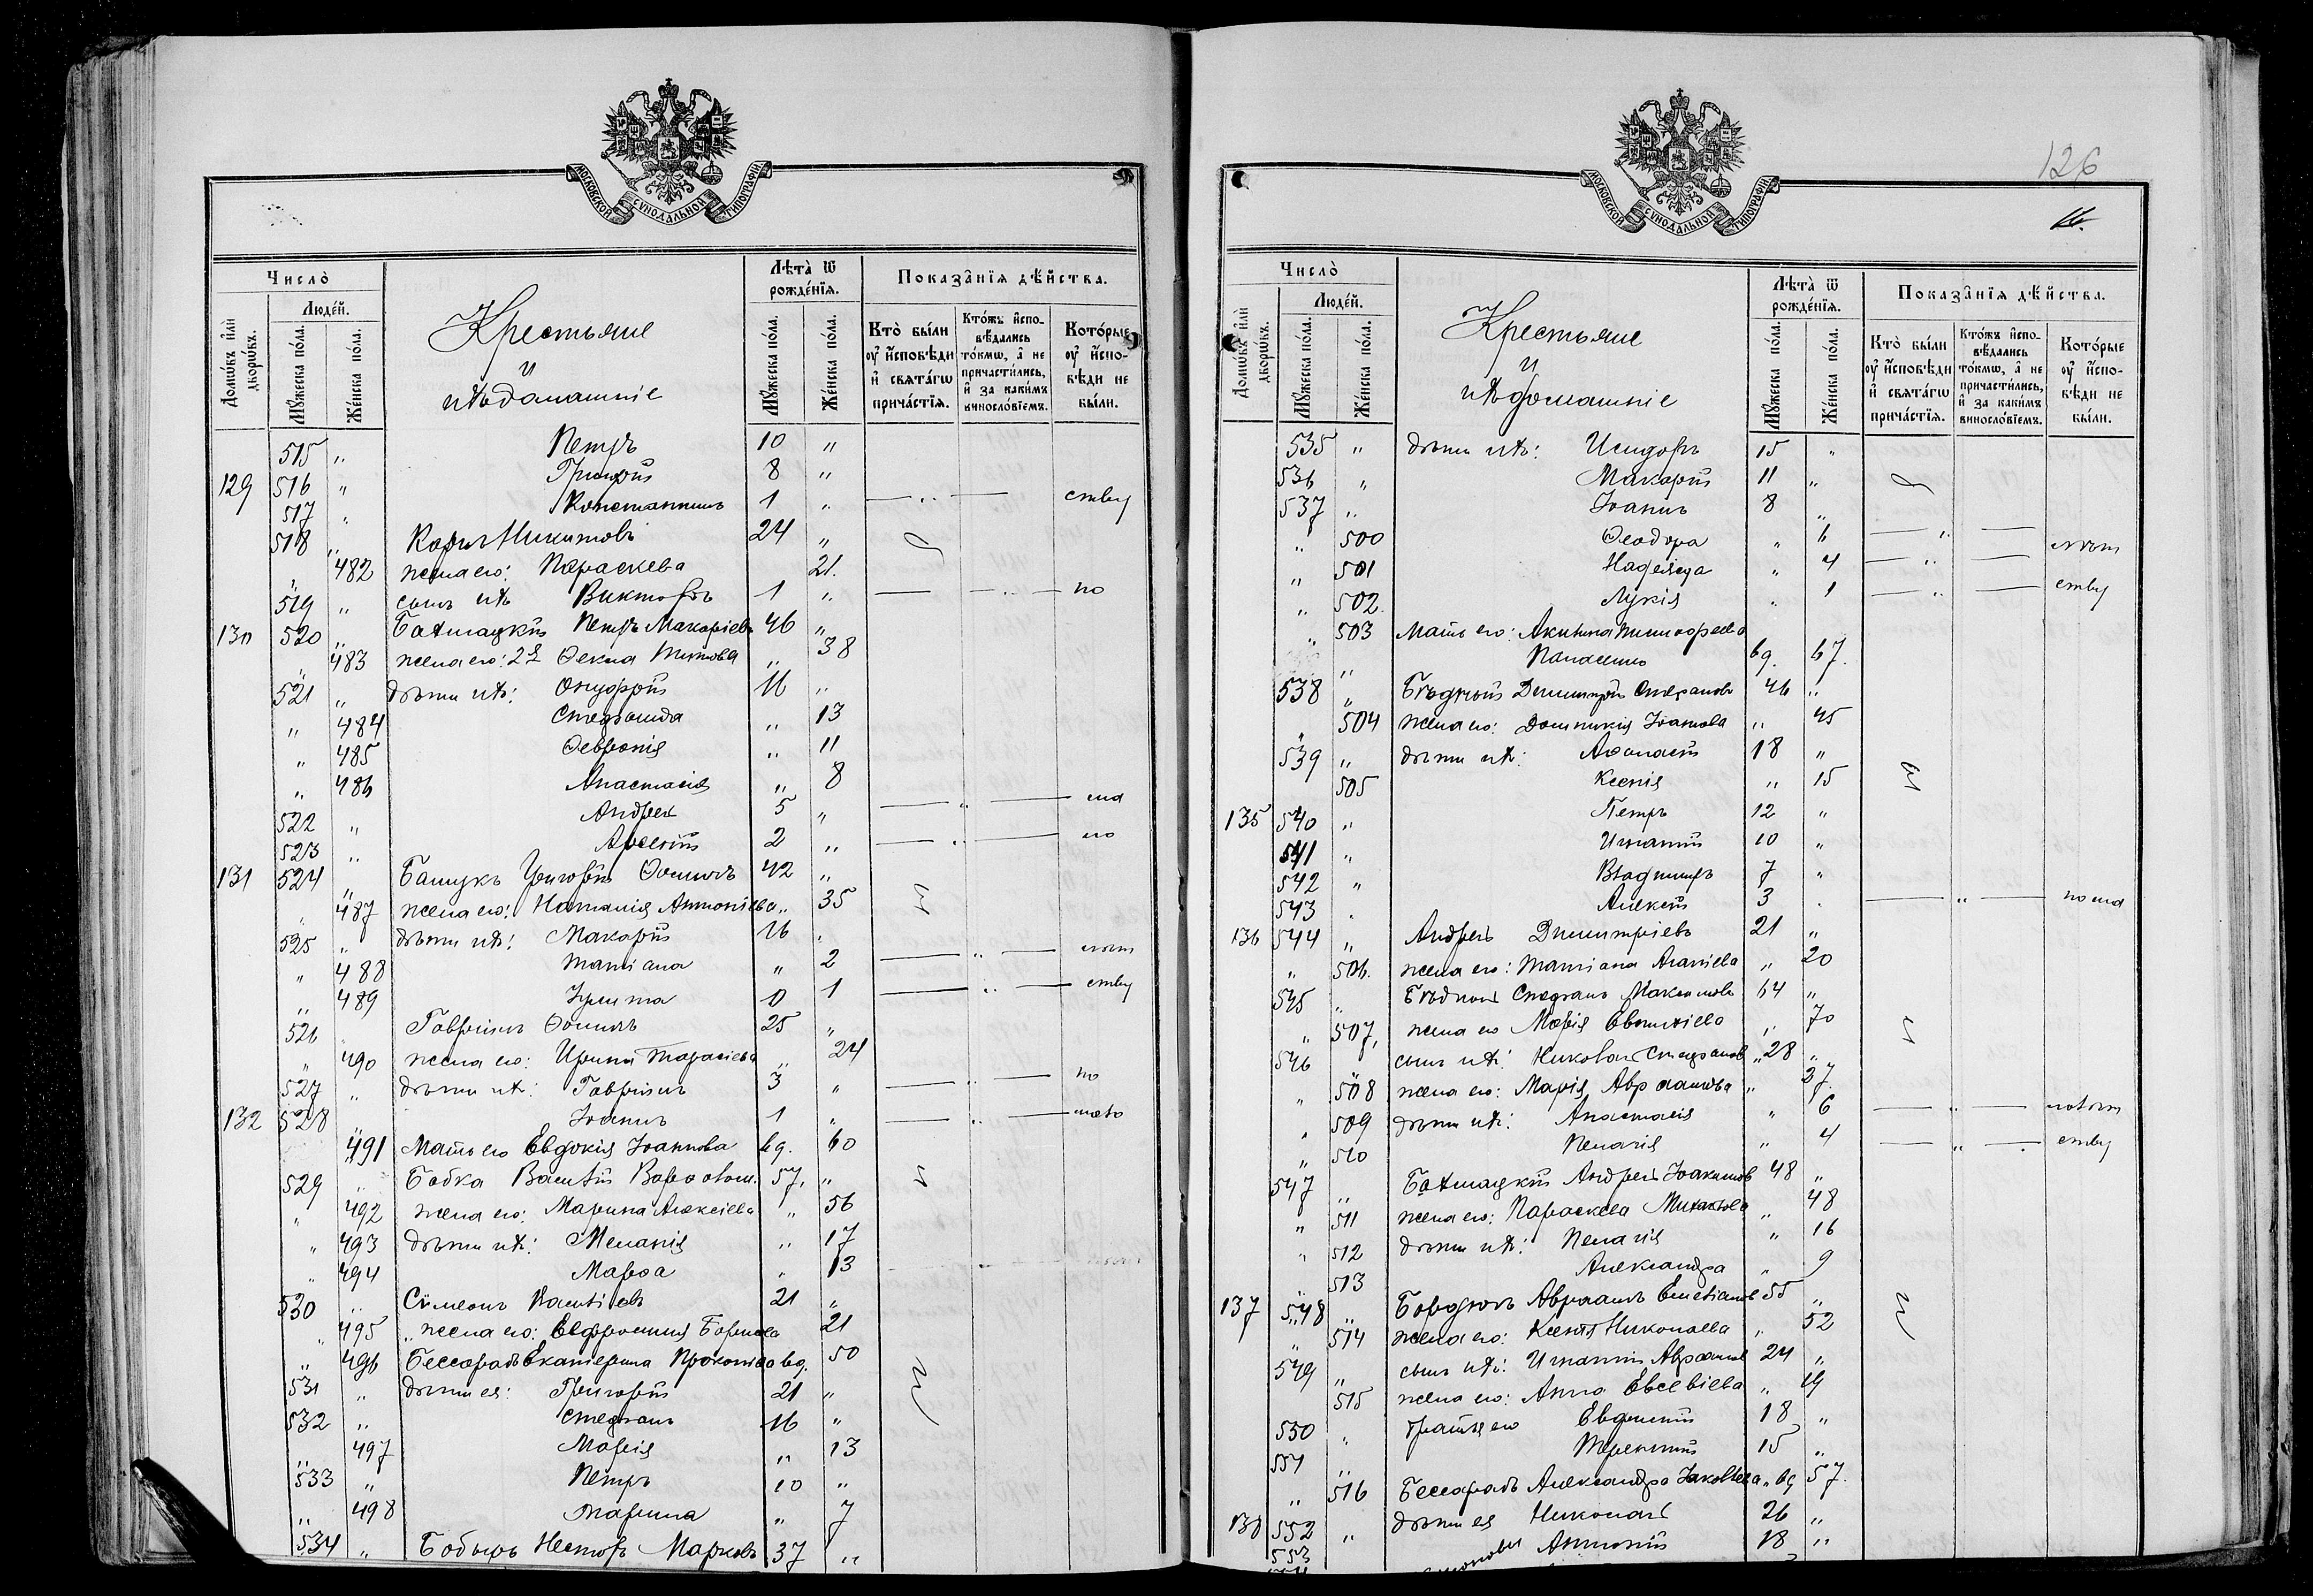 МОСКОВСКОЙ СѴНОДАЛЬНОЙ ТИПОГРАФІИ
Число̀
Домѡ́въ и҆лѝ дворѡ́въ.
Людéй.
Мꙋ́жеска по́ла.
Же́нска по́ла.
Крестьяне
и
ихъ домашніе
Лѣта̀ ѿ рожде́нїѧ.
Мꙋ́жеска по́ла.
Же́нска по́ла.
Показа̑нїѧ дѣ́йства.
Кто̀ бы́ли ᲂу҆ и҆сповѣди и҆ свѧта́гѡ прича́стїѧ.
Кто́жъ и҆спо- вѣ́дались то́кмѡ, а҆ не причасти́лись, и҆ за каки́мъ винословїемъ.
Кото́рые ᲂу҆ и҆спо- вѣди не бы́ли.
515 „ Петръ 10 „
129 516 „ Григорій 8 „
517 „ Константинъ 1 „ — „ — ству
518 „ Карпъ Никитовъ 24 „
482 жена его: Параскева 21.
519 „ сынъ ихъ Викторъ 1 „ — „ — по
130 520 „ Петръ Макаріевъ 46 „
„ 483 жена его: 2я Ѳекла Титова „ 38
521 „ дѣти ихъ: Онуфрій 16 „
„ 484 Стефанида „ 13
„ 485 Ѳевронія „ 11
„ 486 Анастасія „ 8
522 „ Андрей 5 „ — „ —
523 „ Арсеній 2 „ — „ —
131 524 „ Бащукъ Григорій Ѳоминъ 42 „
„ 487 жена его: Наталія Антоніева „ 35
525 „ дѣти ихъ: Макарій 16 „
„ 488 Татіана „ 2 — „ —
„ 489 Іулита 0 1 — „ — ству
526 Гавріилъ Ѳоминъ 25 „
„ 490 жена его: Ирина Тарасіева „ 24
527 „ дѣти ихъ: Гавріилъ 3 „ — „ — по
132 528 Іоаннъ 1 „ — „ —
„ 491 Мать его Евдокія Іоаннова вд. 60
529 „ Бабка Василій Варѳолом. 57. „
„ 492 жена его: Марина Алексіева „ 56
„ 493 дѣти ихъ: Меланія „ 17
„ 494 Марѳа „ 13
530 „ Сѵмеонъ Василіевъ 21 „
„ 495 „ жена его: Евфросинія Борисова 21
„ 496 Бессарабъ Екатерина Прокопіева вд. 50
531 „ дѣти ея: Григорій 21 „
532 „ Стефанъ 16 „
„ 497 Марія „ 13
533 „ Петръ 10 „
„ 498 Марина „ 7
534 „ Бобырь Несторъ Марковъ 37 „
126
МОСКОВСКОЙ СѴНОДАЛЬНОЙ ТИПОГРАФІИ
Число̀
Домѡ́въ и҆лѝ дворѡ́въ.
Людéй.
Мꙋ́жеска по́ла.
Же́нска по́ла.
Крестьяне
и
ихъ домашніе
Лѣта̀ ѿ рожде́нїѧ.
Мꙋ́жеска по́ла.
Же́нска по́ла.
Показа̑нїѧ дѣ́йства.
Кто̀ бы́ли ᲂу҆ и҆сповѣди и҆ свѧта́гѡ прича́стїѧ.
Кто́жъ и҆спо- вѣ́дались то́кмѡ, а҆ не причасти́лись, и҆ за каки́мъ винословїемъ.
Кото́рые ᲂу҆ и҆спо- вѣди не бы́ли.
535 „ дѣти ихъ: Исидоръ 15 „
536 „ Макарій 11 „
537 „ Іоаннъ 8 „
„ 500 Ѳеодора „ 6 — „ —
„ 501 Надежда „ 4 — „ —
„ 502 Лукія „ 1 — „ — ству
„ 503 Мать его: Акилина
„ вд. 67.
538 „ Бѣдный Димитрій Стефановъ 46 „
„ 504 жена его: Домникія Іоаннова „ 45
539 „ дѣти ихъ: Аѳанасій 18 „
505 Ксенія „ 15
135 540 „ Петръ 12 „
541 „ Игнатій 10 „
542 „ Владиміръ 7 „
543 „ Алексій 3 „ — „ —
136 544 „ Андрей Димитріевъ 21 „
„ 506. жена его: Татіана Ананіева „ 20
545 „ Бѣдный Стефанъ Максимовъ 64 „
„ 507, жена его Марія Евѳиміева „ 70
546 сынъ ихъ: Николай Стефановъ „ 28 „
„ 508 жена его: Марія Авраамова „ 37.
„ 509 дѣти ихъ: Анастасія „ 6 — „ —
„ 510 Пелагія „ 4 — „ — ству
547 „ Андрей Іоакимовъ 48 „
„ 511 жена его: Параскева Михайлова „ 48
„ 512 дѣти ихъ: Пелагія „ 16
513 Александра „ 9
137 548 „ Бородюкъ Авраамъ Емеліановъ 55 „
„ 514 жена его: Ксенія Николаева „ 52
549 „ сынъ ихъ: Игнатій Авраамовъ 24 „
515 жена его: Анна Евсевіева „ 19
550 „ братья его Евфимій 18 „
551 „ Терентій 15 „
„ 516 Бессарабъ Александра Іаковлева „ вд 57.
138 552 „ дѣти ея Николай 26 „
553 Антоній 18 „